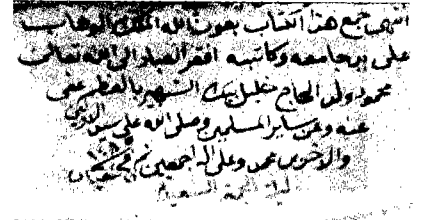 انتهى جمع هذا الكتاب بعون الله الملك الوهاب
على يد جامعه وكاتبه افقر العباد الى الله تعالى
محمود ولد الحاج خليل بيك الشهير بالعظم عفى
عنه وعن ساير المسلمين وصلى الله على سيد الاولين
والاخرين محمد وعلى اله اجمعين
ليلة الجمعة